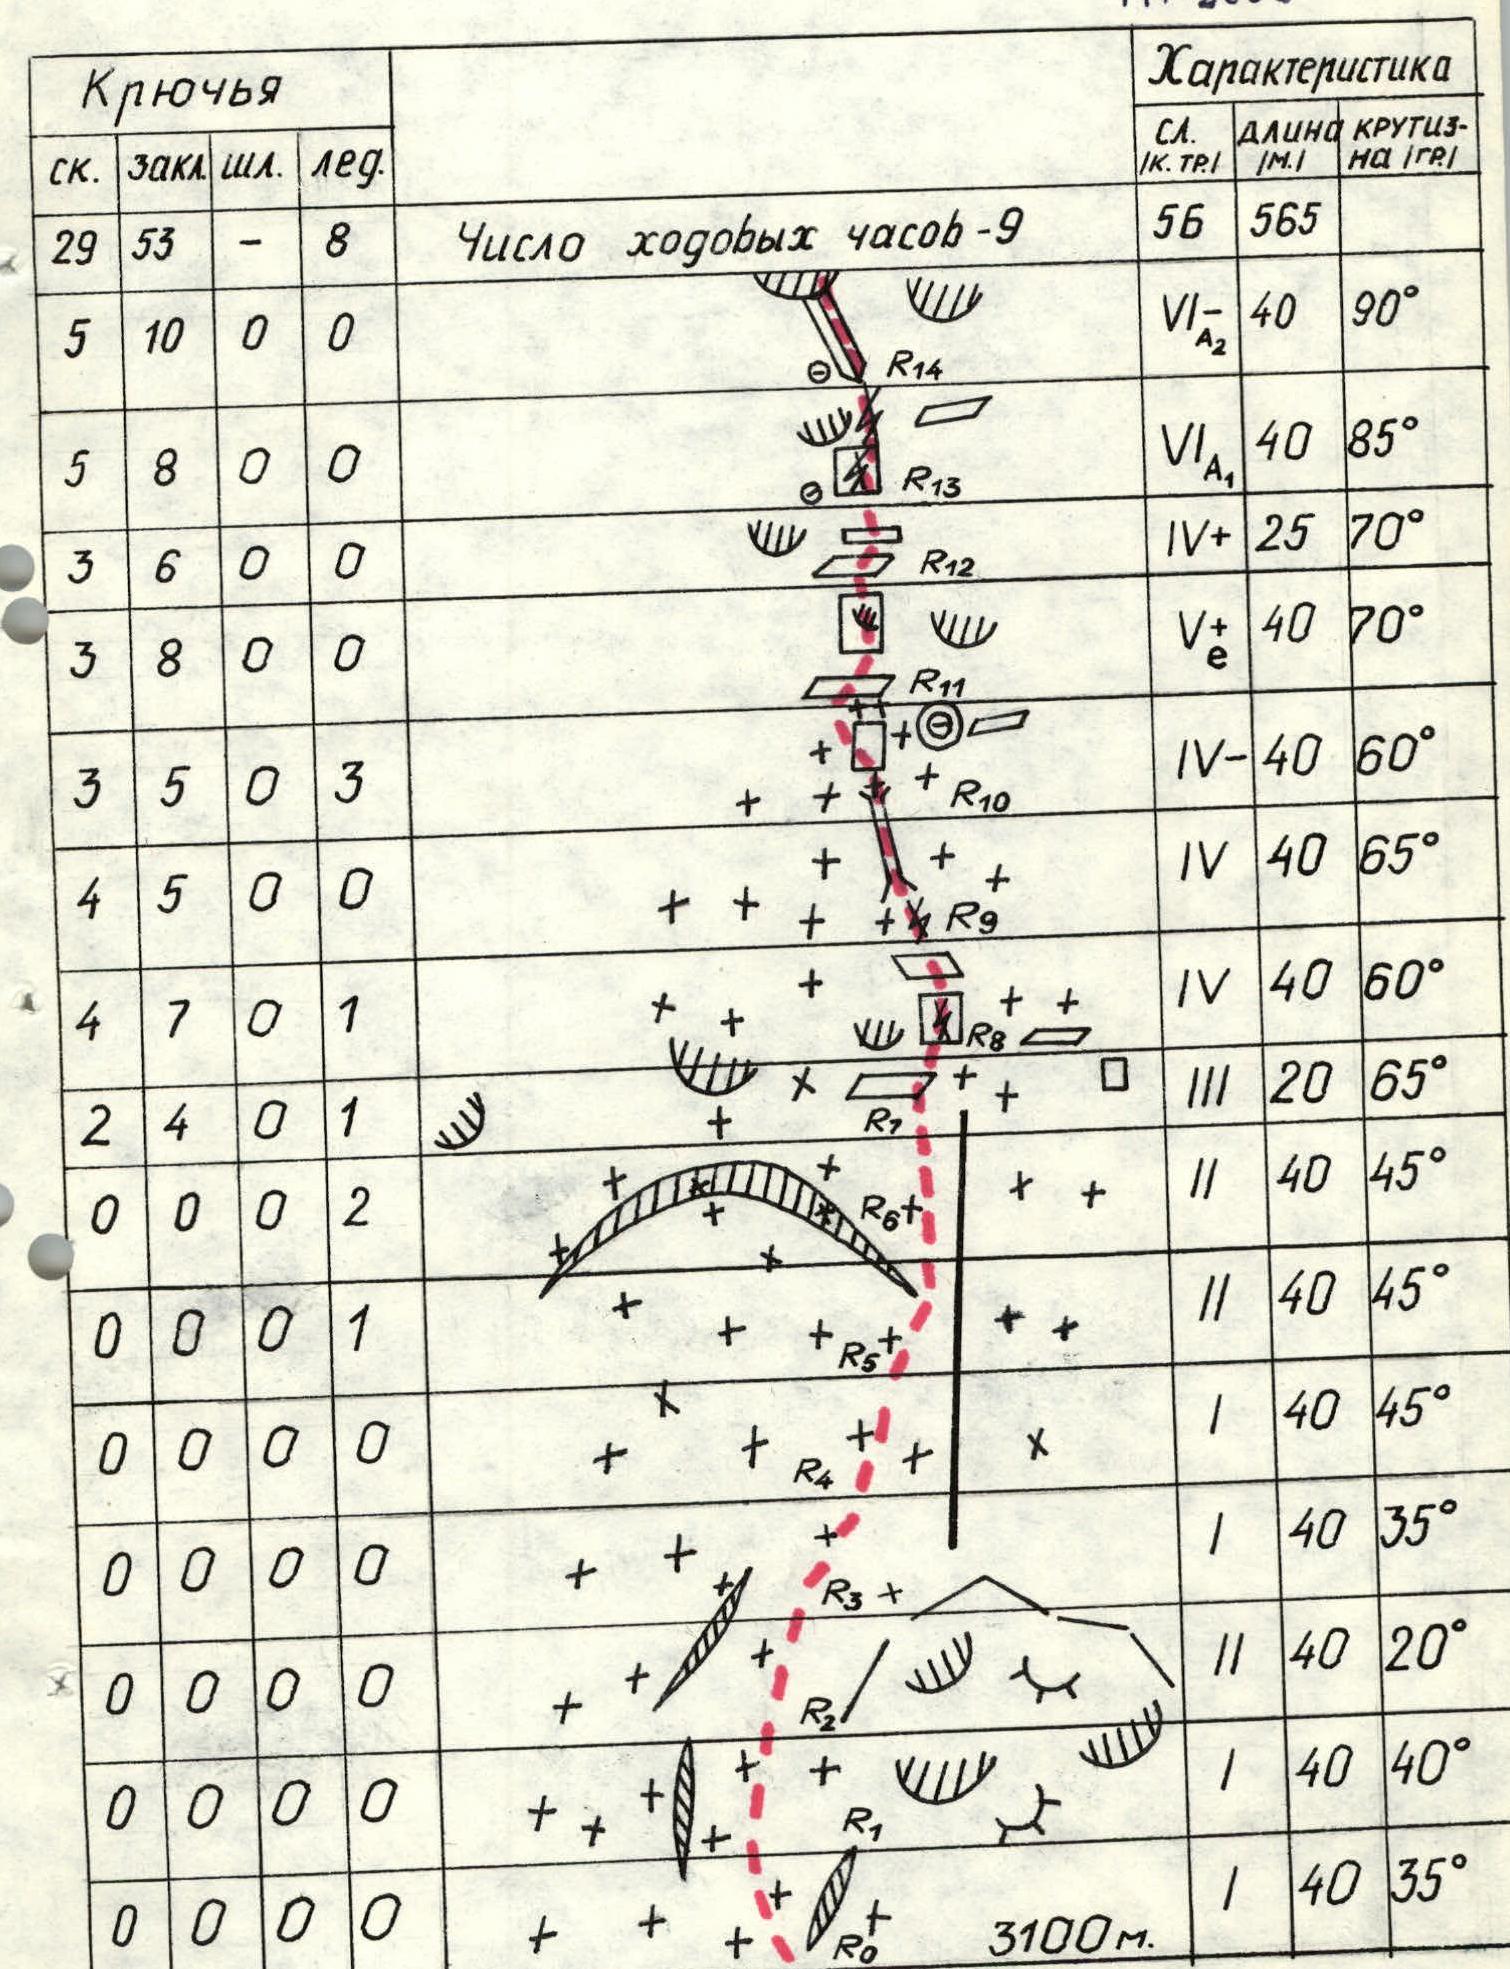 Крючья
Характеристика
ск. закл. шл. лед.
сл. /к. тр./ длина /м./ крутиз-на /гр./
29 53 - 8 Число ходовых часов-9 5б 565
5 10 0 0 R14 VI- A2 40 90°
5 8 0 0 R13 VI A1 40 85°
3 6 0 0 R12 IV+ 25 70°
3 8 0 0 R11 V+ e 40 70°
3 5 0 3 R10 IV- 40 60°
4 5 0 0 R9 IV 40 65°
4 7 0 1 R8 IV 40 60°
2 4 0 1 R7 III 20 65°
0 0 0 2 R6 II 40 45°
0 0 0 1 R5 II 40 45°
0 0 0 0 R4 I 40 45°
0 0 0 0 R3 I 40 35°
0 0 0 0 R2 II 40 20°
0 0 0 0 R1 I 40 40°
0 0 0 0 R0 3100м. I 40 35°